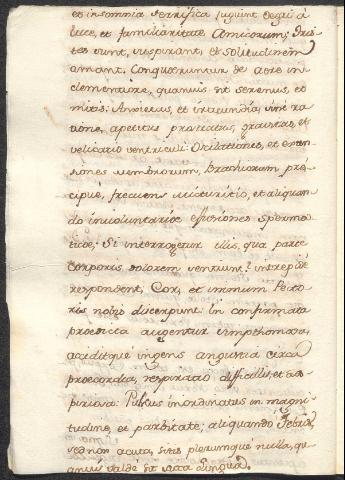 et insomnia terrifica fugiunt degũ à
luce, et familiaritate Amicorum; Tris-
tes sunt, suspirant, et solitudinem
amant. Conqueruntur de aere in-
clementiare, quamvis sit serenus, et
mitis: Anxietas, et iracundia, sine ra-
tione, apetitus prostratus, gravitas, et
velicatio ventriculi: Oscitationes, et exten-
siones membrorum, brachiorum prę-
cipuè, frequens micturitio, et aliquan-
do involuntariae efusiones sperma-
ticae; Si interrogetur illis, qua parte
corporis dolorem sentiunt? intrepidè
respondent, Cor, et intimum Pecto-
ris nobis discerpunt. in confirmata
praedicta augentur simpthomata,
acceditquè ingens angustia circa
praecordia, respiratio difficilis, et sus-
piriosa: Pulsus inordinatus in magni-
tudine, et parbitate; aliquando febris,
sed non acuta, sitis plerumquè nulla, qu-
amvis valdè sit sicca lingua.